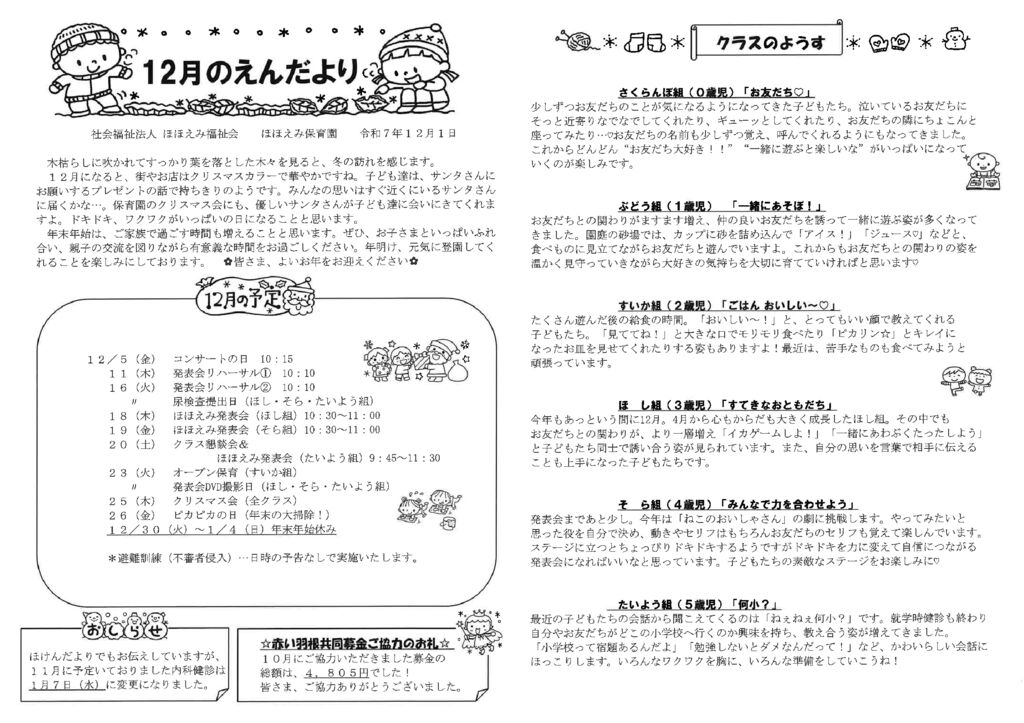 12月のえんだより
社会福祉法人 ほほえみ福祉会　　ほほえみ保育園　　令和７年１２月１日
木枯らしに吹かれてすっかり葉を落とした木々を見ると、冬の訪れを感じます。
１２月になると、街やお店はクリスマスカラーで華やかですね。子ども達は、サンタさんに
お願いするプレゼントの話で持ちきりのようです。みんなの思いはすぐ近くにいるサンタさん
に届くかな…。保育園のクリスマス会にも、優しいサンタさんが子ども達に会いにきてくれま
すよ。ドキドキ、ワクワクがいっぱいの日になることと思います。
年末年始は、ご家族で過ごす時間も増えることと思います。ぜひ、お子さまといっぱいふれ
合い、親子の交流を図りながら有意義な時間をお過ごしください。年明け、元気に登園してく
れることを楽しみにしております。　✿皆さま、よいお年をお迎えください✿
12月の予定
１２／５（金）　コンサートの日　１０：１５
１１（木）　発表会リハーサル①　１０：１０
１６（火）　発表会リハーサル②　１０：１０
〃　　尿検査提出日（ほし・そら・たいよう組）
１８（木）　ほほえみ発表会（ほし組）１０：３０～１１：００
１９（金）　ほほえみ発表会（そら組）１０：３０～１１：００
２０（土）　クラス懇談会＆
ほほえみ発表会（たいよう組）９：４５～１１：３０
２３（火）　オープン保育（すいか組）
〃　　発表会DVD撮影日（ほし・そら・たいよう組）
２５（木）　クリスマス会（全クラス）
２６（金）　ピカピカの日（年末の大掃除！）
１２／３０（火）～１／４（日）年末年始休み
＊避難訓練（不審者侵入）…日時の予告なしで実施いたします。
おしらせ
ほけんだよりでもお伝えしていますが、
１１月に予定いておりました内科健診は
１月７日（水）に変更になりました。
☆赤い羽根共同募金ご協力のお礼☆
１０月にご協力いただきました募金の
総額は、４，８０５円でした！
皆さま、ご協力ありがとうございました。
クラスのようす
さくらんぼ組（０歳児）「お友だち♡」
少しずつお友だちのことが気になるようになってきた子どもたち。泣いているお友だちに
そっと近寄りなでなでしてくれたり、ギューッとしてくれたり、お友だちの隣にちょこんと
座ってみたり…♡お友だちの名前も少しずつ覚え、呼んでくれるようにもなってきました。
これからどんどん“お友だち大好き！！”“一緒に遊ぶと楽しいな”がいっぱいになって
いくのが楽しみです。
ぶどう組（１歳児）　「一緒にあそぼ！」
お友だちとの関わりがますます増え、仲の良いお友だちを誘って一緒に遊ぶ姿が多くなって
きました。園庭の砂場では、カップに砂を詰め込んで「アイス！」「ジュース♡」などと、
食べものに見立てながらお友だちと遊んでいますよ。これからもお友だちとの関わりの姿を
温かく見守っていきながら大好きの気持ちを大切に育てていければと思います♡
すいか組（２歳児）「ごはん おいしい～♡」
たくさん遊んだ後の給食の時間。「おいしい～！」と、とってもいい顔で教えてくれる
子どもたち。「見ててね！」と大きな口でモリモリ食べたり「ピカリン☆」とキレイに
なったお皿を見せてくれたりする姿もありますよ！最近は、苦手なものも食べてみようと
頑張っています。
ほ し組（３歳児）「すてきなおともだち」
今年もあっという間に12月。4月から心もからだも大きく成長したほし組。その中でも
お友だちとの関わりが、より一層増え「イカゲームしよ！」「一緒にあわぶくたったしよう」
と子どもたち同士で誘い合う姿が見られています。また、自分の思いを言葉で相手に伝える
ことも上手になった子どもたちです。
そ ら組（４歳児）「みんなで力を合わせよう」
発表会まであと少し。今年は「ねこのおいしゃさん」の劇に挑戦します。やってみたいと
思った役を自分で決め、動きやセリフはもちろんお友だちのセリフも覚えて楽しんでいます。
ステージに立つとちょっぴりドキドキするようですがドキドキを力に変えて自信につながる
発表会になればいいなと思っています。子どもたちの素敵なステージをお楽しみに♡
たいよう組（５歳児）「何小？」
最近の子どもたちの会話から聞こえてくるのは「ねぇねぇ何小？」です。就学時健診も終わり
自分やお友だちがどこの小学校へ行くのか興味を持ち、教え合う姿が増えてきました。
「小学校って宿題あるんだよ」「勉強しないとダメなんだって！」など、かわいらしい会話に
ほっこりします。いろんなワクワクを胸に、いろんな準備をしていこうね！